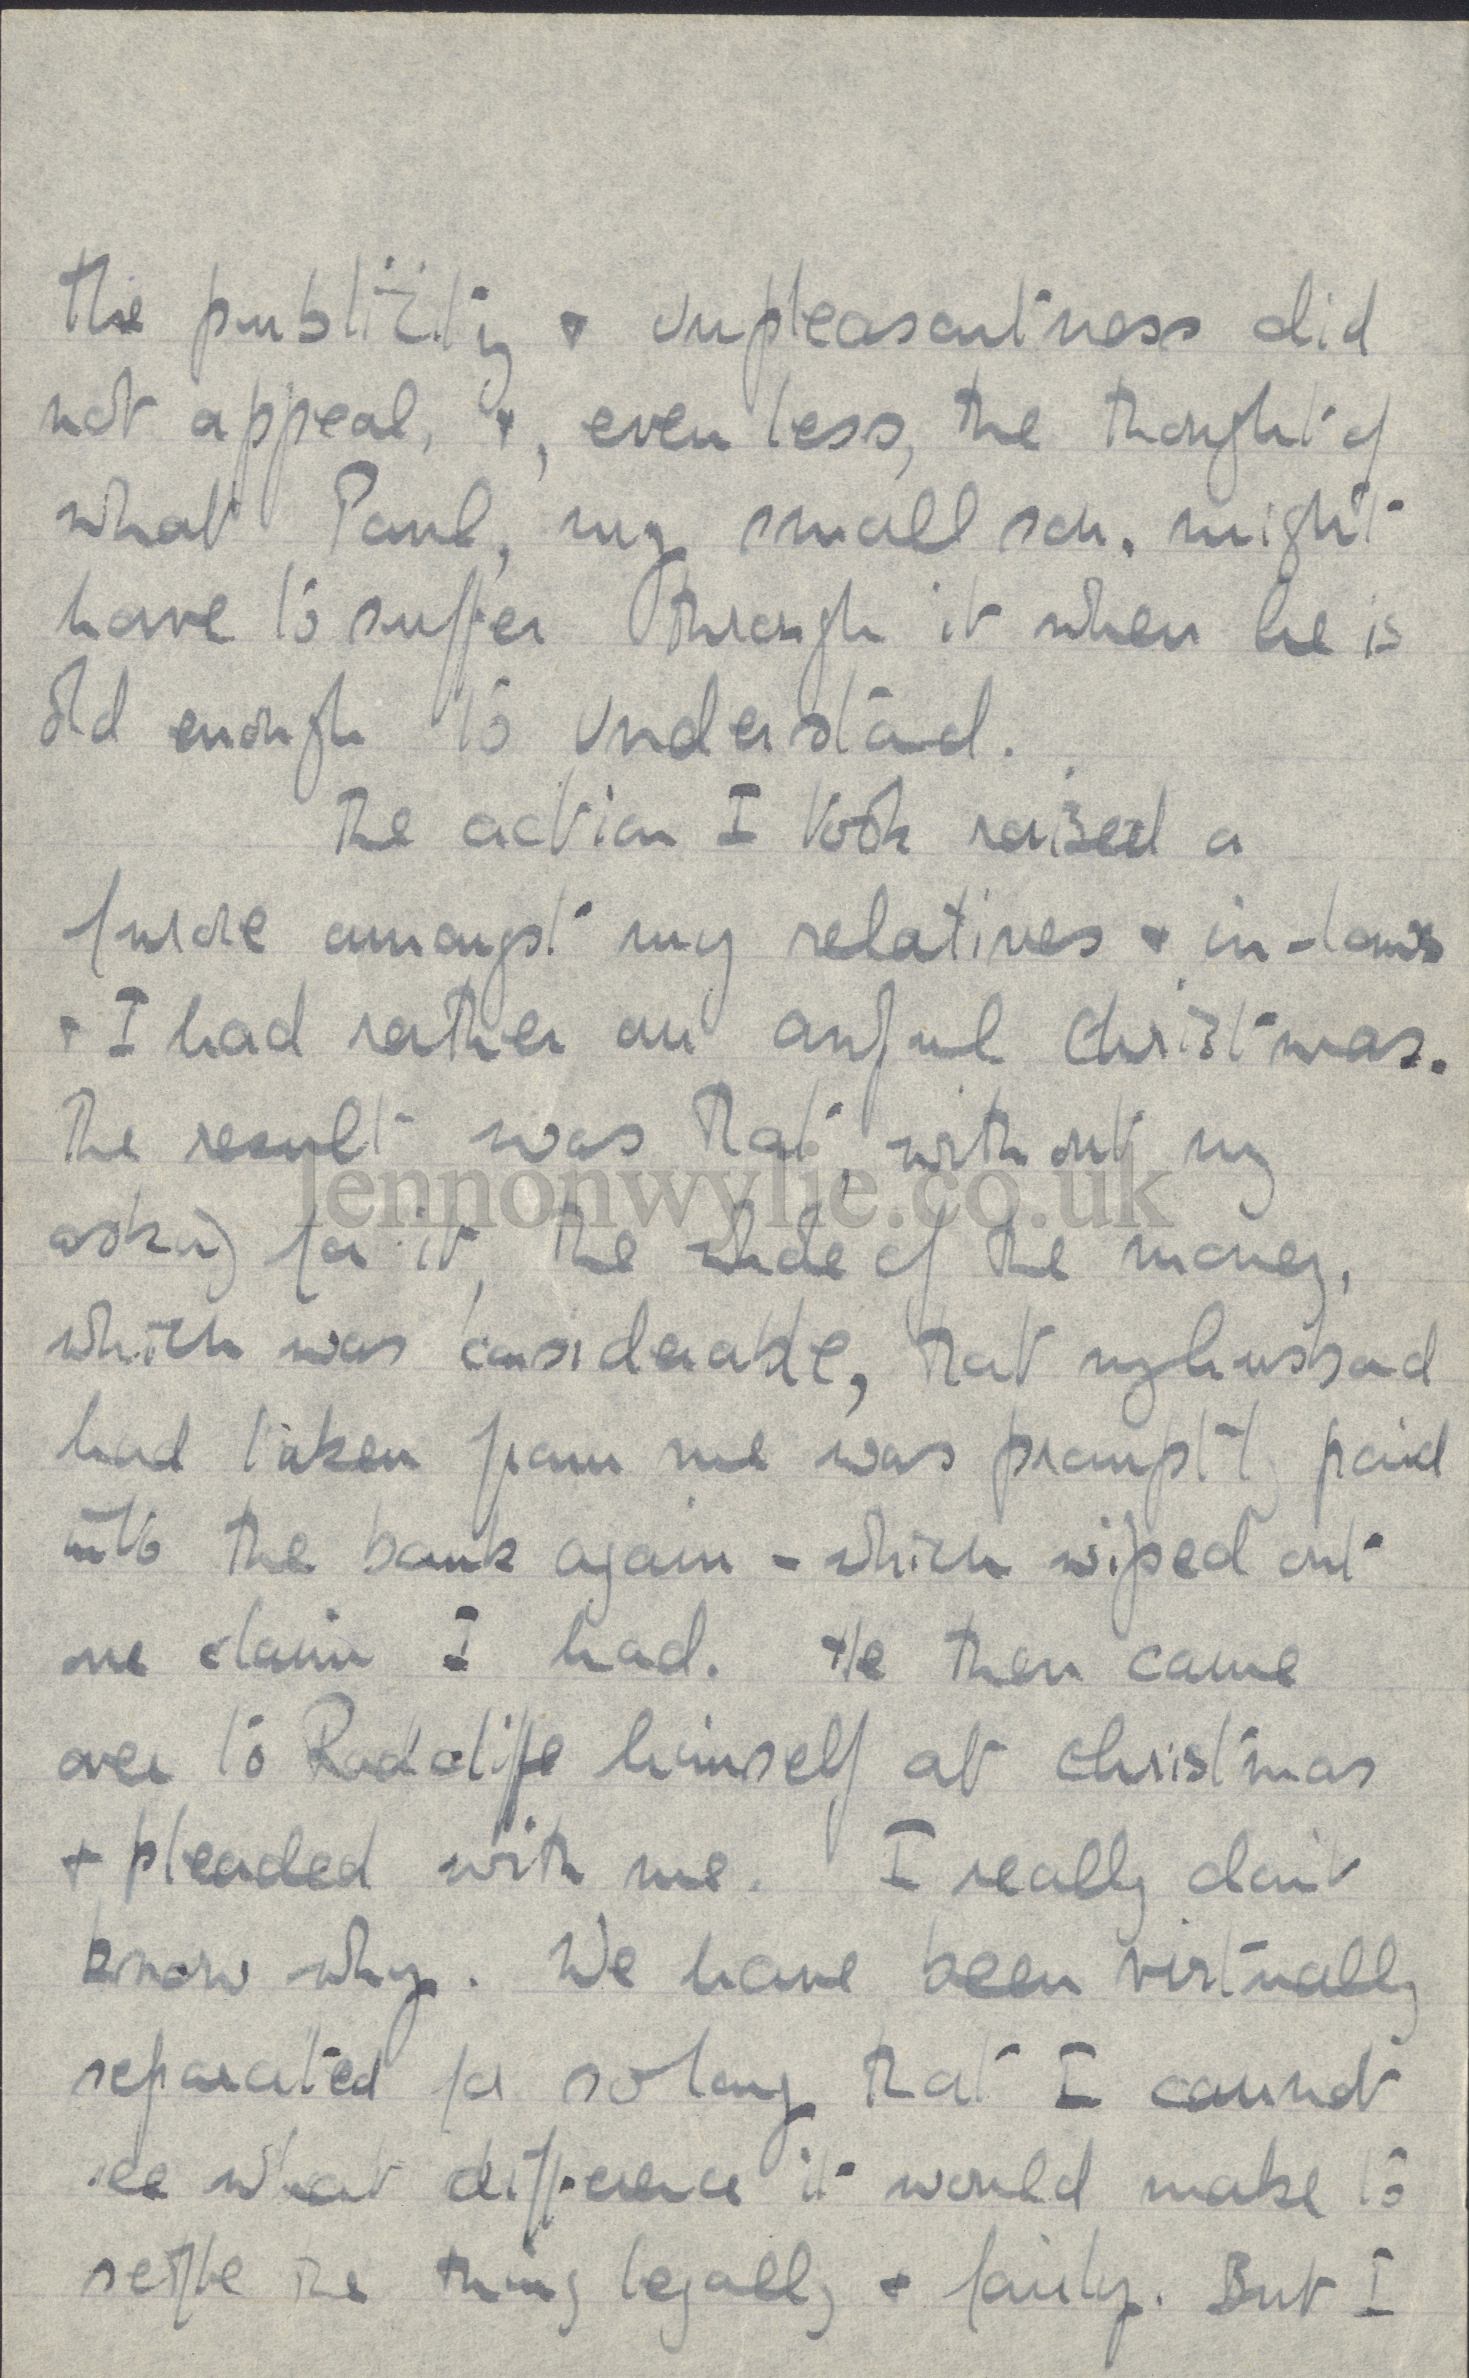 The publicity & unpleasantness did
not appeal, &, even less, the thought of
what Paul, my small son, might
have to suffer through it when he is
old enough to understand.
The action I took raised a
furore amongst my relatives & in-laws
& I had rather an awful Christmas.
The result was that, without my
lennonwylie.co.uk
asking for it, the whole of the money,
which was considerable, that my husband
had taken from me was promptly paid
into the bank again - which wiped out
one claim I had. He then came
over to Radcliffe himself at Christmas
& pleaded with me. I really don't
know why. We have been virtually
separated for so long that I cannot
see what difference it would make to
settle the thing legally & fairly. But I